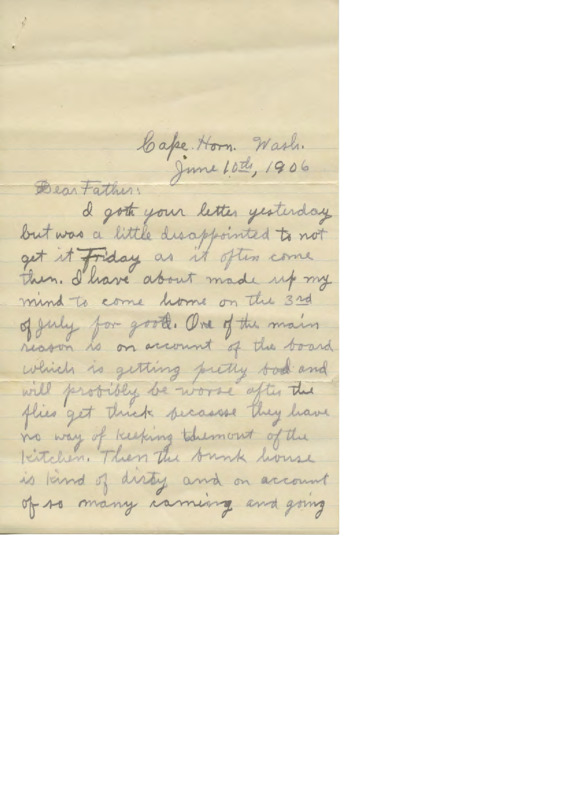 Cape Horn. Wash.
June 10th, 1906
Dear Father:
I gott your letter yesterday
but was a little disappointed to not
get it Friday as it often come
then. I have about made up my
mind to come home on the 3rd
of July for good. One of the main
reason is on account of the board
which is getting pretty bad and
will probibly be worse after the
flies get thick because they have
no way of keeping them out of the
kitchen. Then the bunk house
is kind of dirty and on account
of so many comeing and going